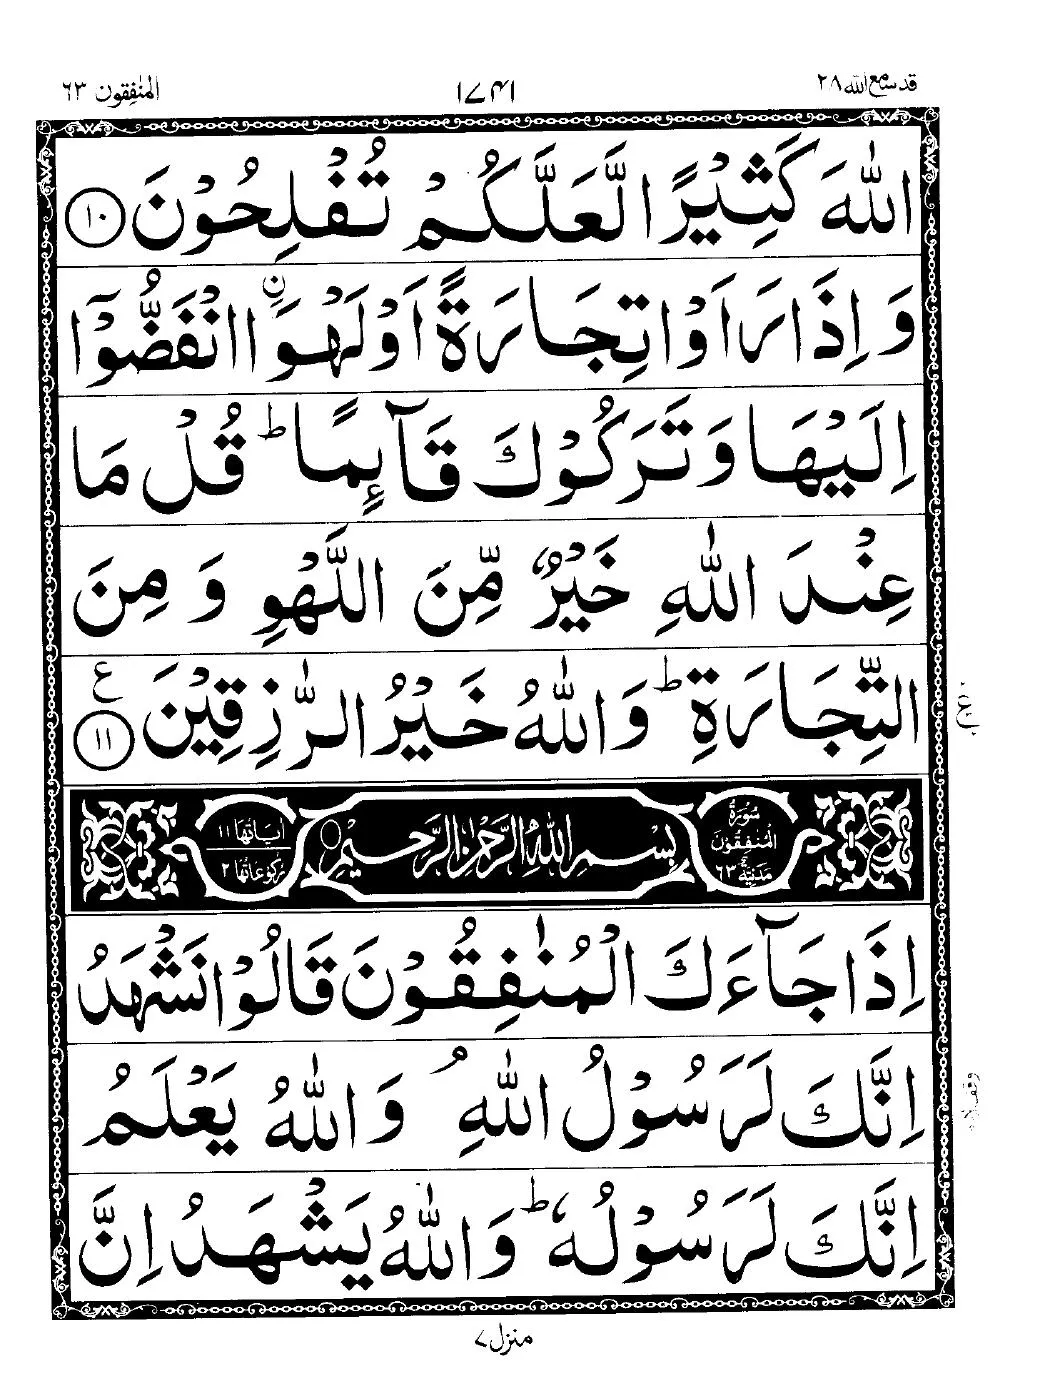 قد سمع الله ٢٨
المنٰفقون ٦٣
اللّٰهَ كَثِيْرًا لَّعَلَّكُمْ تُفْلِحُوْنَ ١٠
وَ اِذَا رَاَوْا تِجَارَةً اَوْ لَهْوَا ۨ انْفَضُّوْۤا
اِلَيْهَا وَ تَرَكُوْكَ قَآئِمًا ؕ قُلْ مَا
عِنْدَ اللّٰهِ خَيْرٌ مِّنَ اللَّهْوِ وَ مِنَ
التِّجَارَةِ ؕ وَ اللّٰهُ خَيْرُ الرّٰزِقِيْنَ ١١ ع
سُوْرَةُ الْمُنٰفِقُوْنَ مَدَنِيَّةٌ ٦٣
بِسْمِ اللّٰهِ الرَّحْمٰنِ الرَّحِيْمِ
اٰيَاتُهَا ١١
رُكُوْعَاتُهَا ٢
اِذَا جَآءَكَ الْمُنٰفِقُوْنَ قَالُوْا نَشْهَدُ
اِنَّكَ لَرَسُوْلُ اللّٰهِ ۘ وَ اللّٰهُ يَعْلَمُ
اِنَّكَ لَرَسُوْلُهٗ ؕ وَ اللّٰهُ يَشْهَدُ اِنَّ
منزل ٧